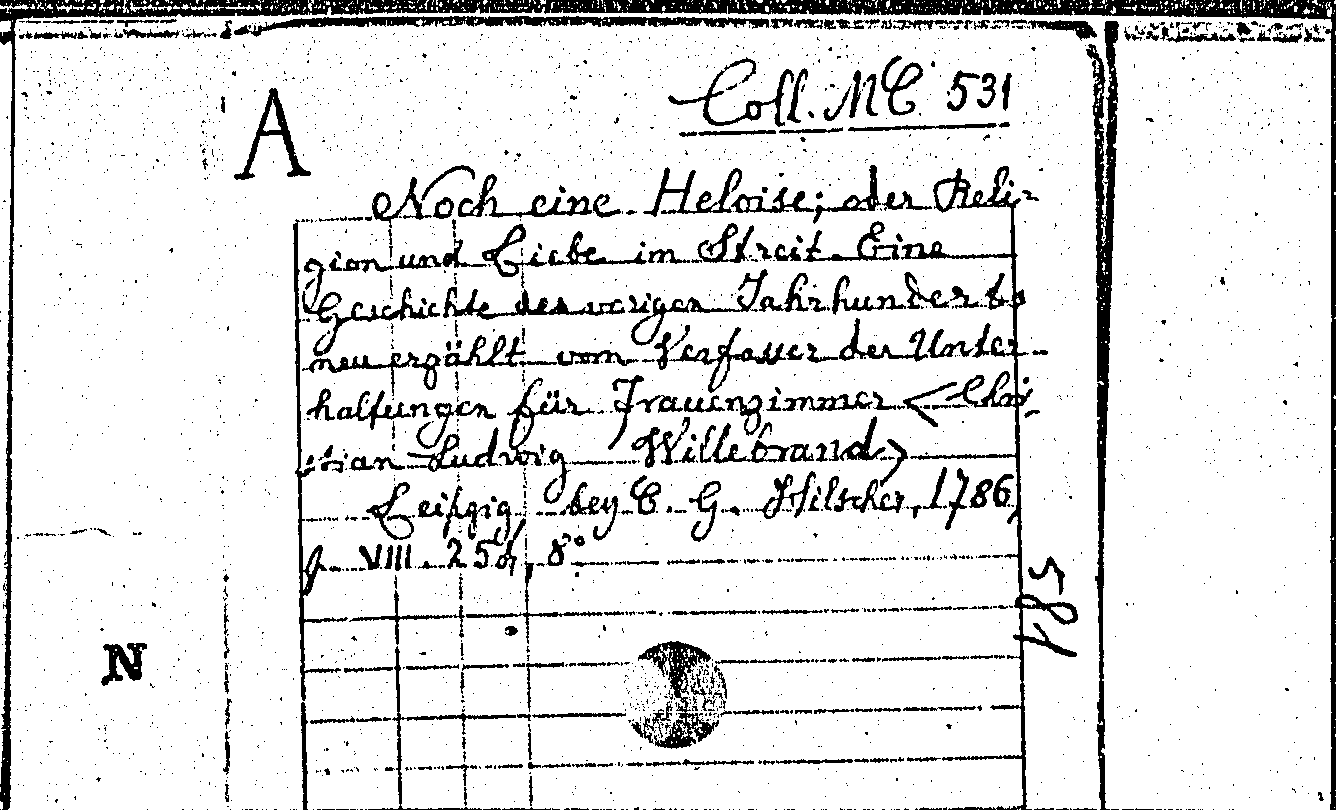 A
Coll. MC 531
Noch eine Heloise; oder Reli-
gion und Liebe im Streit. Eine
Geschichte des vorigen Jahrhunderts
neu erzählt vom Verfasser der Unter-
haltungen für Frauenzimmer <Chri-
stian Ludwig Willebrand>
Leipzig, bey C. G. Hilscher, 1786,
p. VIII. 8°.
N